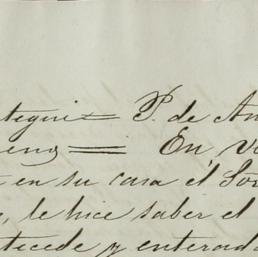 tegui = P. de An
reno = En v
en su casa el Sor
, le hice saber el
tecede y enterad